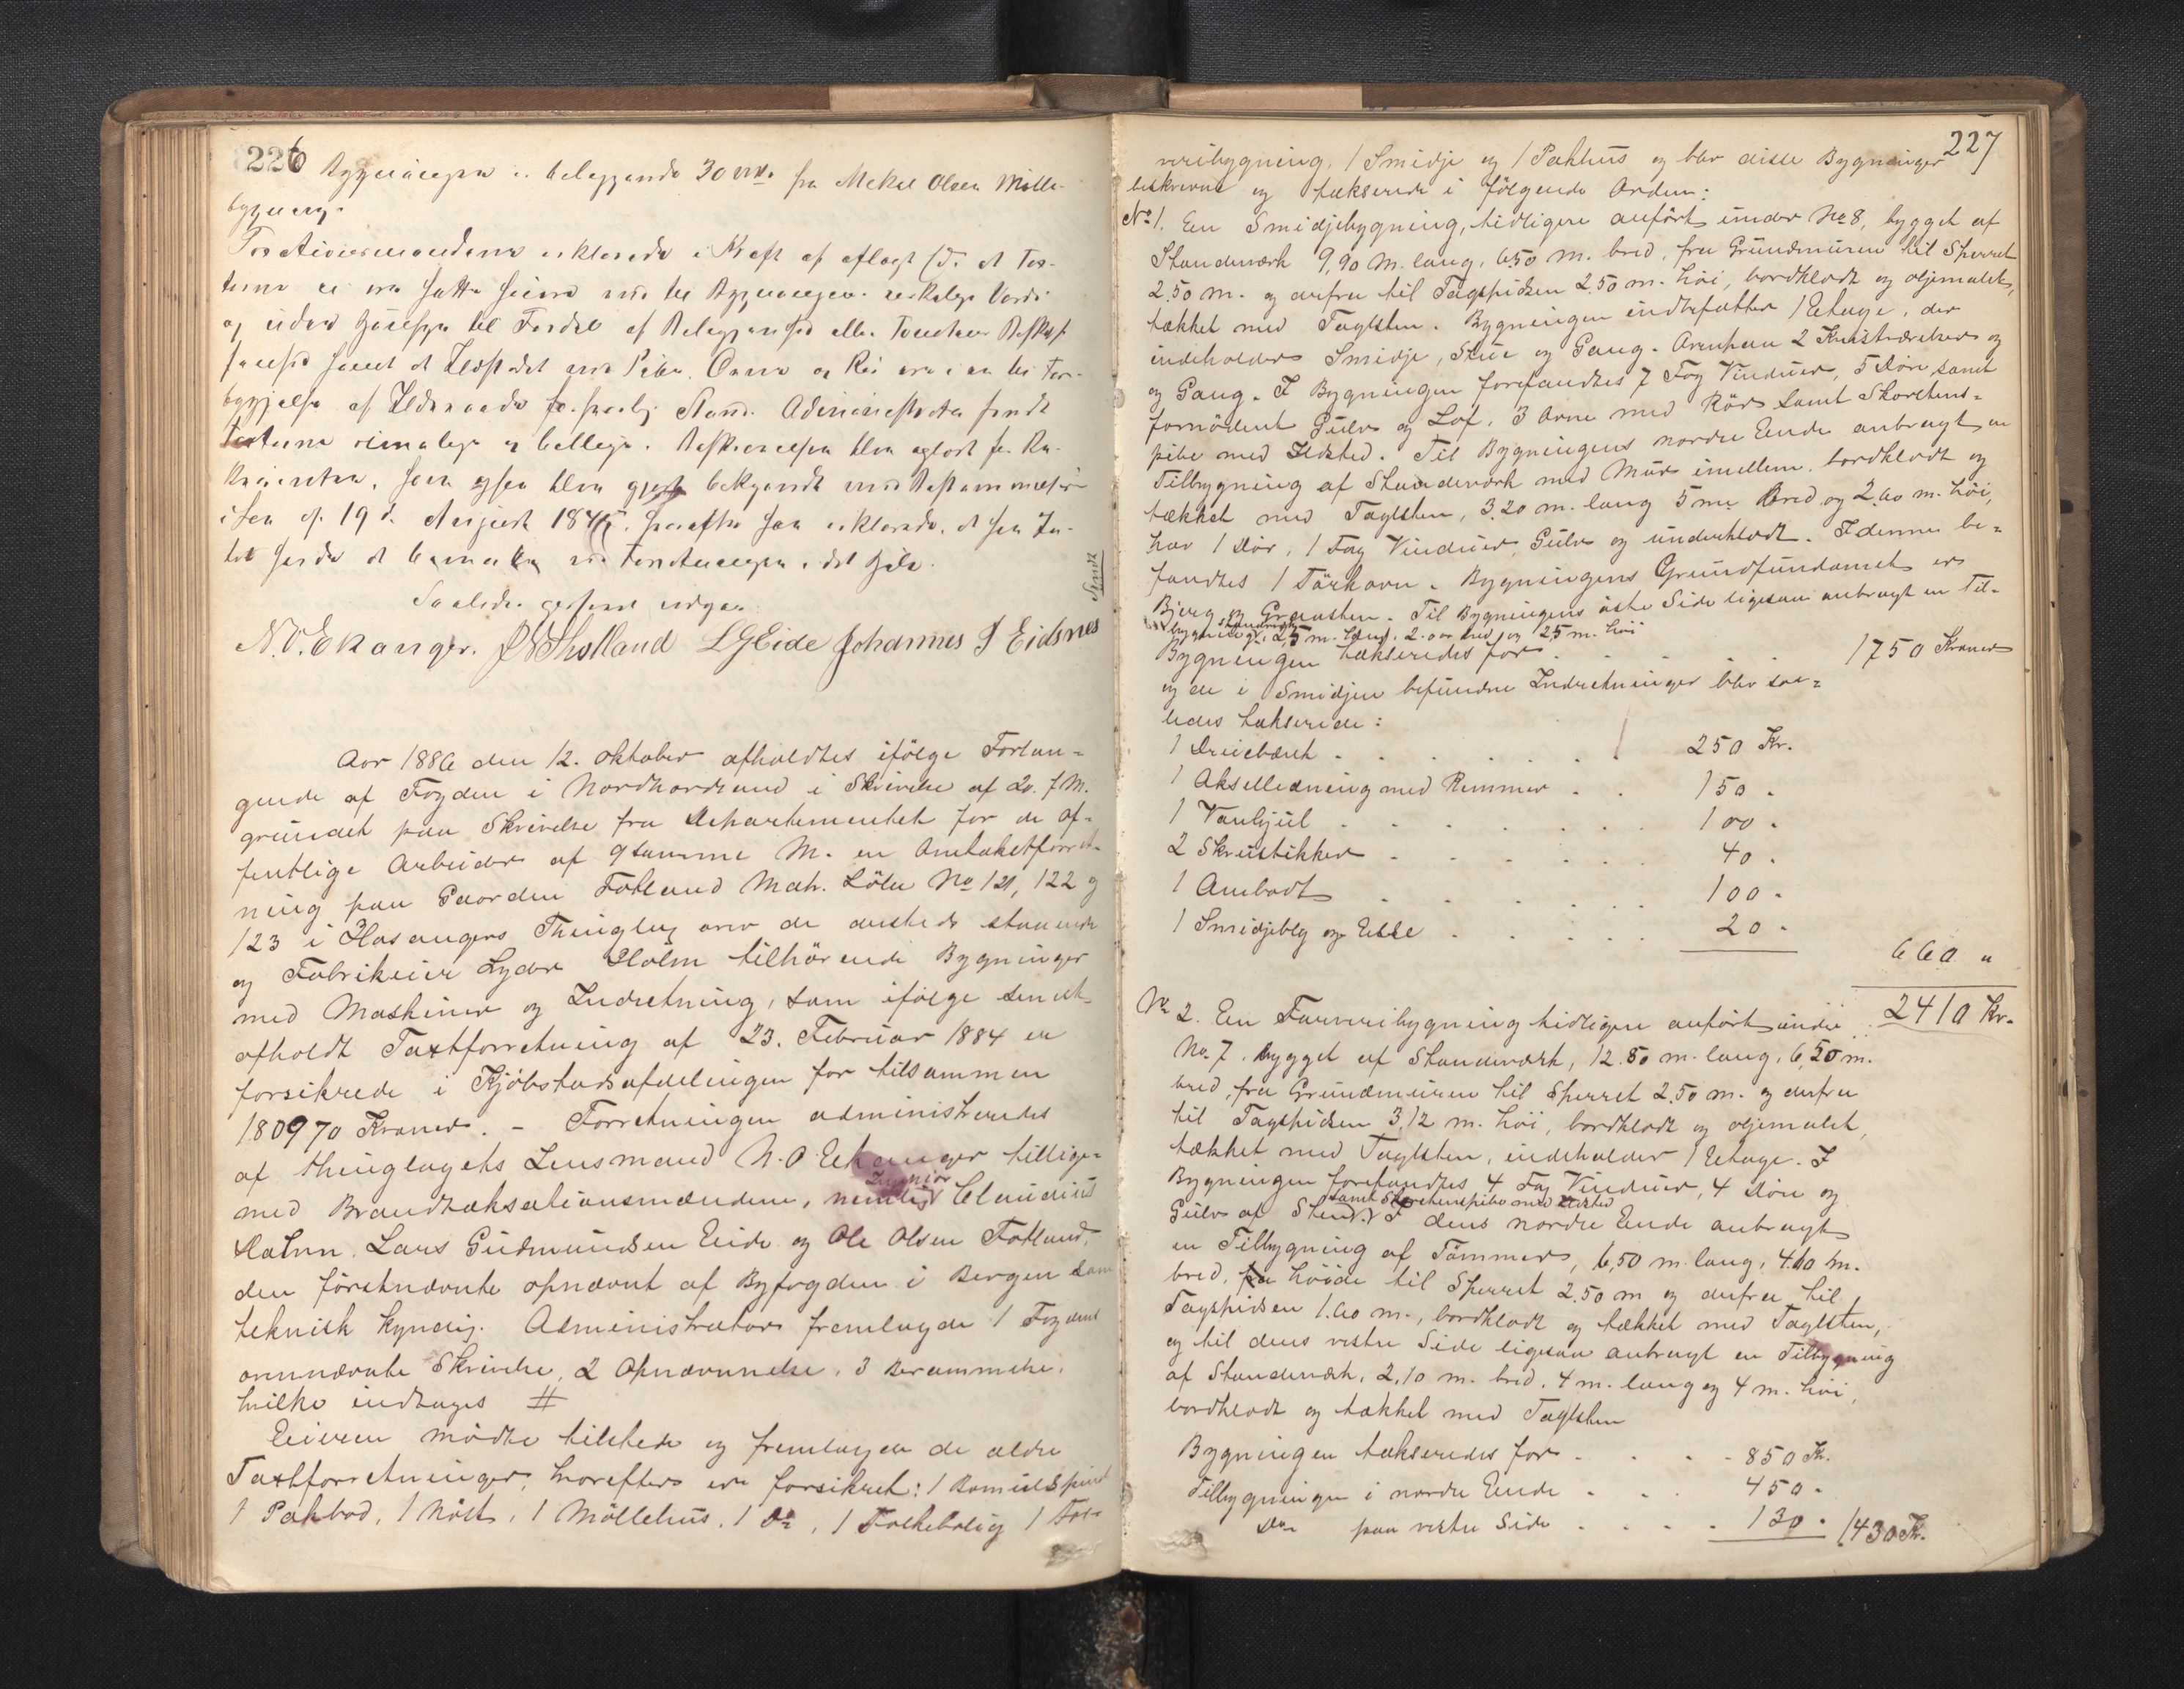 226
Bygningen er beliggende 30 m. fra Mikal Olsen Mølle-
bygning.
Taxationsmændene erklærede i Kraft af aflagt Ed at Tax-
terne er
og uden Hensyn til Fordel af Beliggenhed eller
samt at Ildstedet med Pibe, Ovne og Rør ere i en
af Ildsvaade forsvarlig Stand. Administrator fandt
Taxterne rimelige og billige. Beskrivelsen blev oplæst for
som ogsaa blev gjort bekjendt med Bestemmelserne
i Lov af 19 de August 1845, hvorefter han erklærede, at han In-
tet havde at bemærke ved Forretningen i det Hele.
Saaledes passeret udgaar
N. O. Ekanger. Holland L G Eide Johannes J Eidsnes
Sendt
Aar 1886 den 12. Oktober afholdtes ifølge Forlan-
gende af Fogden i Nordhordland i Skrivelse af 20. f. M.
grundet paa Skrivelse fra Departementet for de of-
fentlige Arbeider af 9 samme M. en Omtakstforret-
ning paa Gaarden Fotland Matr. Løbe No 121, 122 og
123 i Hosangers Thinglag over de dersteds staaende
og Fabrikeier Lyder Holm tilhørende Bygninger
med Maskiner og Indretning, som ifølge senest
afholdt Taxtforretning af 23. Februar 1884 er
forsikrede i Kjøbstadsafdelingen for tilsammen
180970 Kroner. - Forretningen administreredes
af Thinglagets Lensmand N. O. Ekanger tillige-
med Brandtaksationsmændene, nemlig Ingeniør Claudius
Holm. Lars Gudmundsen Eide og Ole Olsen Fotland,
den førstnævnte opnævnt af Byfogden i Bergen som
teknisk kyndig. Administrator fremlagde 1 Fogdens
ovennævnte Skrivelse, 2 Opnævnelse, 3 Berammelse,
hvilke indtages #
Eieren mødte tilstede og fremlagde de ældre
Taxtforretninger, hvorefter er forsikret: 1 Bomuldspind
1 Pakbod, 1 Nøst, 1 Møllehus, 1 Do, 1 Folkebolig 1 Far-
227
veribygning, 1 Smidje og 1 Pakhus og blev disse Bygninger
beskrevne og takserede i følgende Orden:
No 1. En Smidjebygning, tidligere anført under No 8, bygget af
Standværk 9,90 M. lang, 6.50 m. bred, fra Grundmuren til Sperret
2.50 m. og derfra til Tagspidsen 2.50 m. høi, bordklædt og oljemalet,
tækket med Taglsten. Bygningen indbefatter 1 Etage, der
indeholder Smidje, Stue og Gang. Ovenpaa 2 Kvistværelser og
og Gang. I Bygningen forefandtes 7 Fag Vinduer, 5 Døre samt
fornødent Gulv og Loft. 3 Ovne med Rør samt Skorstens-
pibe med Ildsted. Til Bygningens nordre Ende anbragt en
Tilbygning af Standværk med Mur imellem, bordklædt og
tækket med Taglsten, 3.20 m. lang 5 m. bred og 2.60 m. høi,
har 1 Dør, 1 Fag Vinduer, Gulv og underklædt. I denne be-
fandtes 1 Tørkovn. Bygningens Grundfundament er
Bjerg og Graasten. Til Bygningens østre Side ligesaa anbragt en Til-
bygning i Standværk 2,5 m. lang, 2.00 bred og 2.5 m. høi
Bygningen takseredes for . . . . 1750 Kroner
og de i Smidjen befundne Indretninger blev saa-
ledes takserede:
1 Dreiebænk . . . . . . 250 Kr.
1 Akselledning med Remmer . . 150 .
1 Vandhjul . . . . . . 100 .
2 Skrustikker . . . . . . 40 .
1 Ambodt . . . . . . 100 .
1 Smidjebelg og Esse . . . . . 20 .
660 "
2410 Kr.
No 2. En Farveribygning tidligere anført under
No. 7, bygget af Standværk, 12.80 m. lang, 6,50 m.
bred, fra Grundmuren til Sperret 2.50 m. og derfra
til Tagspidsen 3,12 m. høi, bordklædt og oljemalet,
tækket med Taglsten, indeholder 1 Etage. I
Bygningen forefandtes 4 Fag Vinduer, 4 Døre og
Gulv af Sten samt Skorstenspibe med Ildsted. I dens nordre Ende anbragt
en Tilbygning af Tømmer, 6,50 m. lang, 4.60 m.
bred, høide til Sperret 2.50 m og derfra til
Tagspidsen 1.60 m., bordklædt og tækket med Taglsten,
og til dens vestre Side ligesaa anbragt en Tilbygning
af Standværk, 2,10 m. bred, 4 m. lang og 4 m. høi,
bordklædt og tækket med Taglsten
Bygningen takseredes for . . . . 850 Kr.
Tilbygningen i nordre Ende . . . 450 .
Do paa vestre Side . . . . 130 . 1430 Kr.